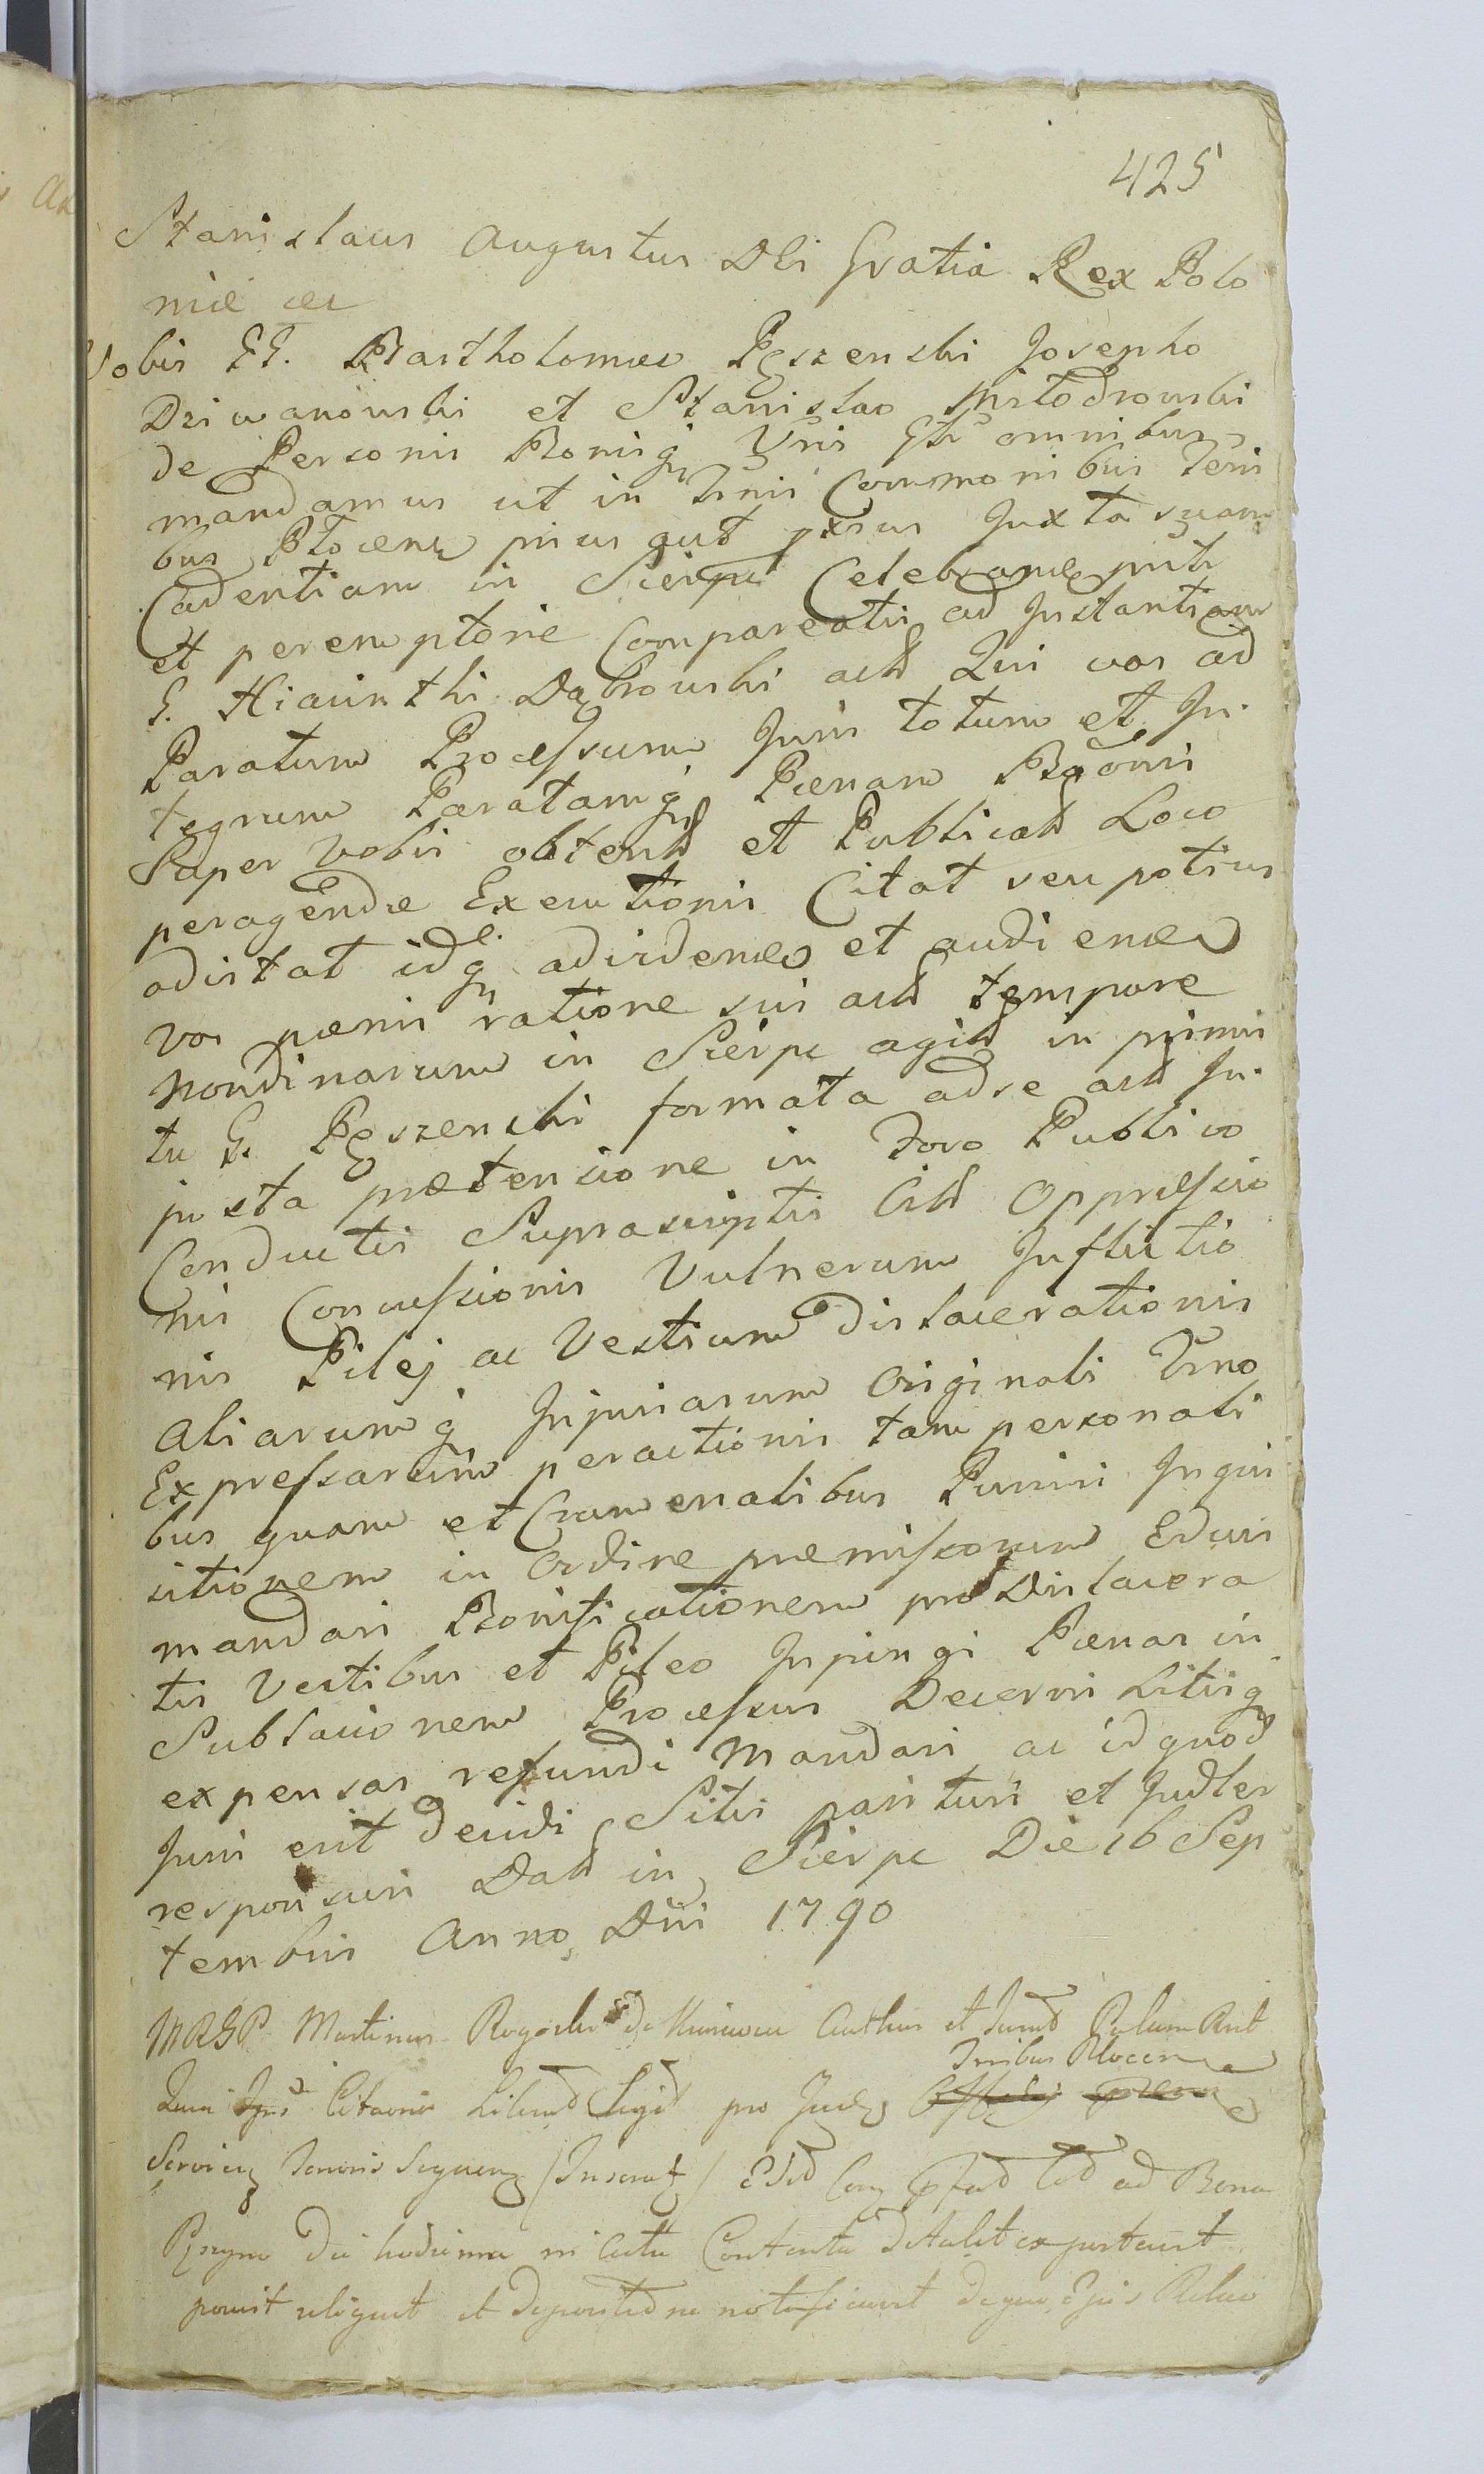 425
Stanislaus Augustus Dei Gratia Rex Polo
niæ etc
Vobis GG. Bartholomeo Pęszenski Josepho
Dziwanowski et Stanislao
de Personis Bonisq Vris Gltr omnibus
mandamus ut in Trnis Coummonibus Terris
bus Plocens prius aut pxsus Juxta suam
Cadentiam in Sierpc Celebrand priti
et peremptorie Compareatis ad Instantiam
G. Hiacinthi Dąbrowski actd Qui vos ad
Paratum Processum Juris totum et In
tegrum Paratamq Pœnam Bãonis
Super vobis obtentd et Publicatd Loco
peragendæ Executionis Citat seu potius
adistat idq e. ad videnđ et audiend
vos pœnis ratione sui actd tempore
Nondinarum in Sierpc agitd in primis
tu G. Pęszenski formata ad se actd In
justa prætensione in Foro Publico
Conductis Suprascriptis Citd Oppressio
nis Concussionis Vulnerum Inflictio
nis Pilej ac Vestium dislacerationis
aliarumq Injuriarum Originali Trno
Expressarum peractionis tam personali
bus quam et Cramenalibus Puniri Inqui
sitionem in Ordine præmissorum Educi
mandari Bonificationem pro Dislacera
tis Vestibus et Pileo Inpingi Pœnas in
Sublacionem Processus Decerni Litisq
expensas refundi Mandari ac id quod
Juris erit decidi Sitis parituri et Judler
responsuri Datd in Sierpc Die 16 Sep
tembris Anno Dni 1790
MRGP Martinus Rogoski de Acthus et Jurad Palum Rnt
Terribus Plocen
Quia Citaonis Litterd Sigd pro Judo
Servien Tenoris Sequen (Inserat)  ad Bona
Pęszyno die hodierna in actu Contenta detulit exportavit
posuit reliquit et depositd ne notificavit de quo Ejus Relaco